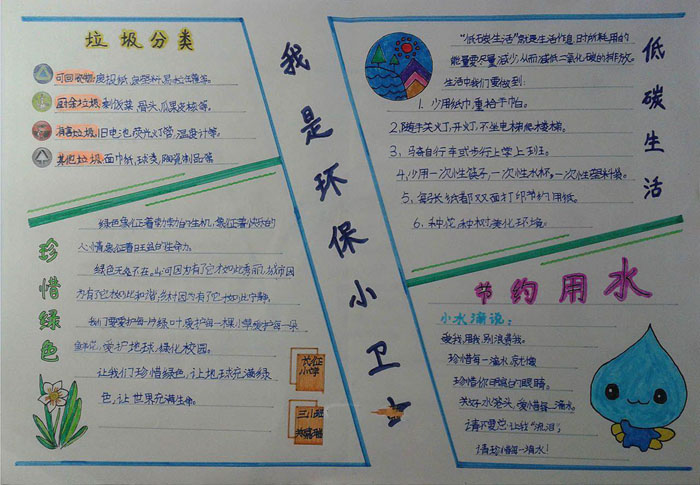 垃圾分类
可回收物:废报纸,废塑料,易拉罐等。
厨余垃圾:剩饭菜,骨头,瓜果皮核等。
有害垃圾:旧电池,荧光灯管,温度计等。
其他垃圾:面巾纸,球类,陶瓷制品等
珍惜绿色
绿色象征着勃勃的生机,象征着快乐的
心情,象征着旺盛的生命力。
绿色无处不在。山河因为有了它
我们要爱护每一片绿叶,爱护每一棵小草,爱护每一朵
鲜花,爱护地球,绿化校园。
让我们珍惜绿色,让地球充满绿
色,让世界充满生命。
长征
小学
三八班
我是环保小卫士
低碳生活
“低碳生活”就是生活作息时所耗用的
能量要尽量减少,从而减低二氧化碳的排放。
生活中我们要做到:
1.少用纸巾,重拾手帕。
2.随手关灯,开灯,不坐电梯爬楼梯。
3.骑自行车或步行上学上班。
4.少用一次性筷子,一次性水杯,一次性塑料袋。
5.每张纸都双面打印节约用纸。
6.种花,种树,美化环境。
节约用水
小水滴说:
爱我,用我,别浪费我。
珍惜每一滴水,就像
珍惜你明亮的眼睛。
关好水龙头,爱惜每一滴水。
请不要总让我“流泪”;
请珍惜每一滴水!